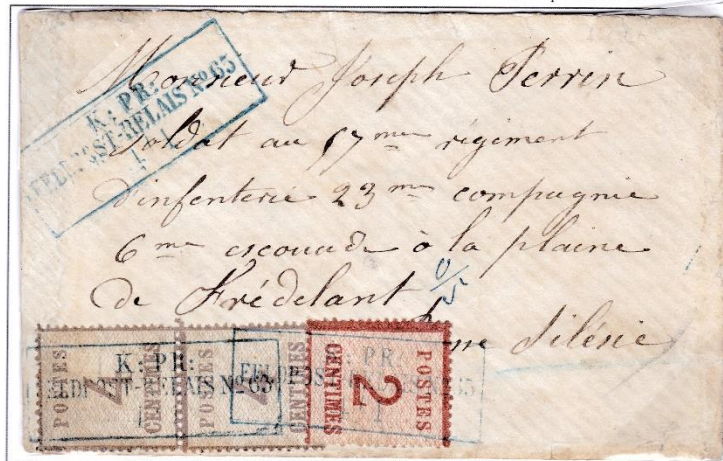 K: PR:
FELDPOST-RELAIS No 65
1 1
Monsieur Joseph Perrin
Soldat au 17me régiment
d'infenterie 23me compagnie
6me escouade à la plaine
de Frédelant
Silésie
K: PR:
FELDPOST-RELAIS No 65
K: PR:
FELDPOST-RELAIS No 65
POSTES
4
CENTIMES
POSTES
4
CENTIMES
POSTES
2
CENTIMES